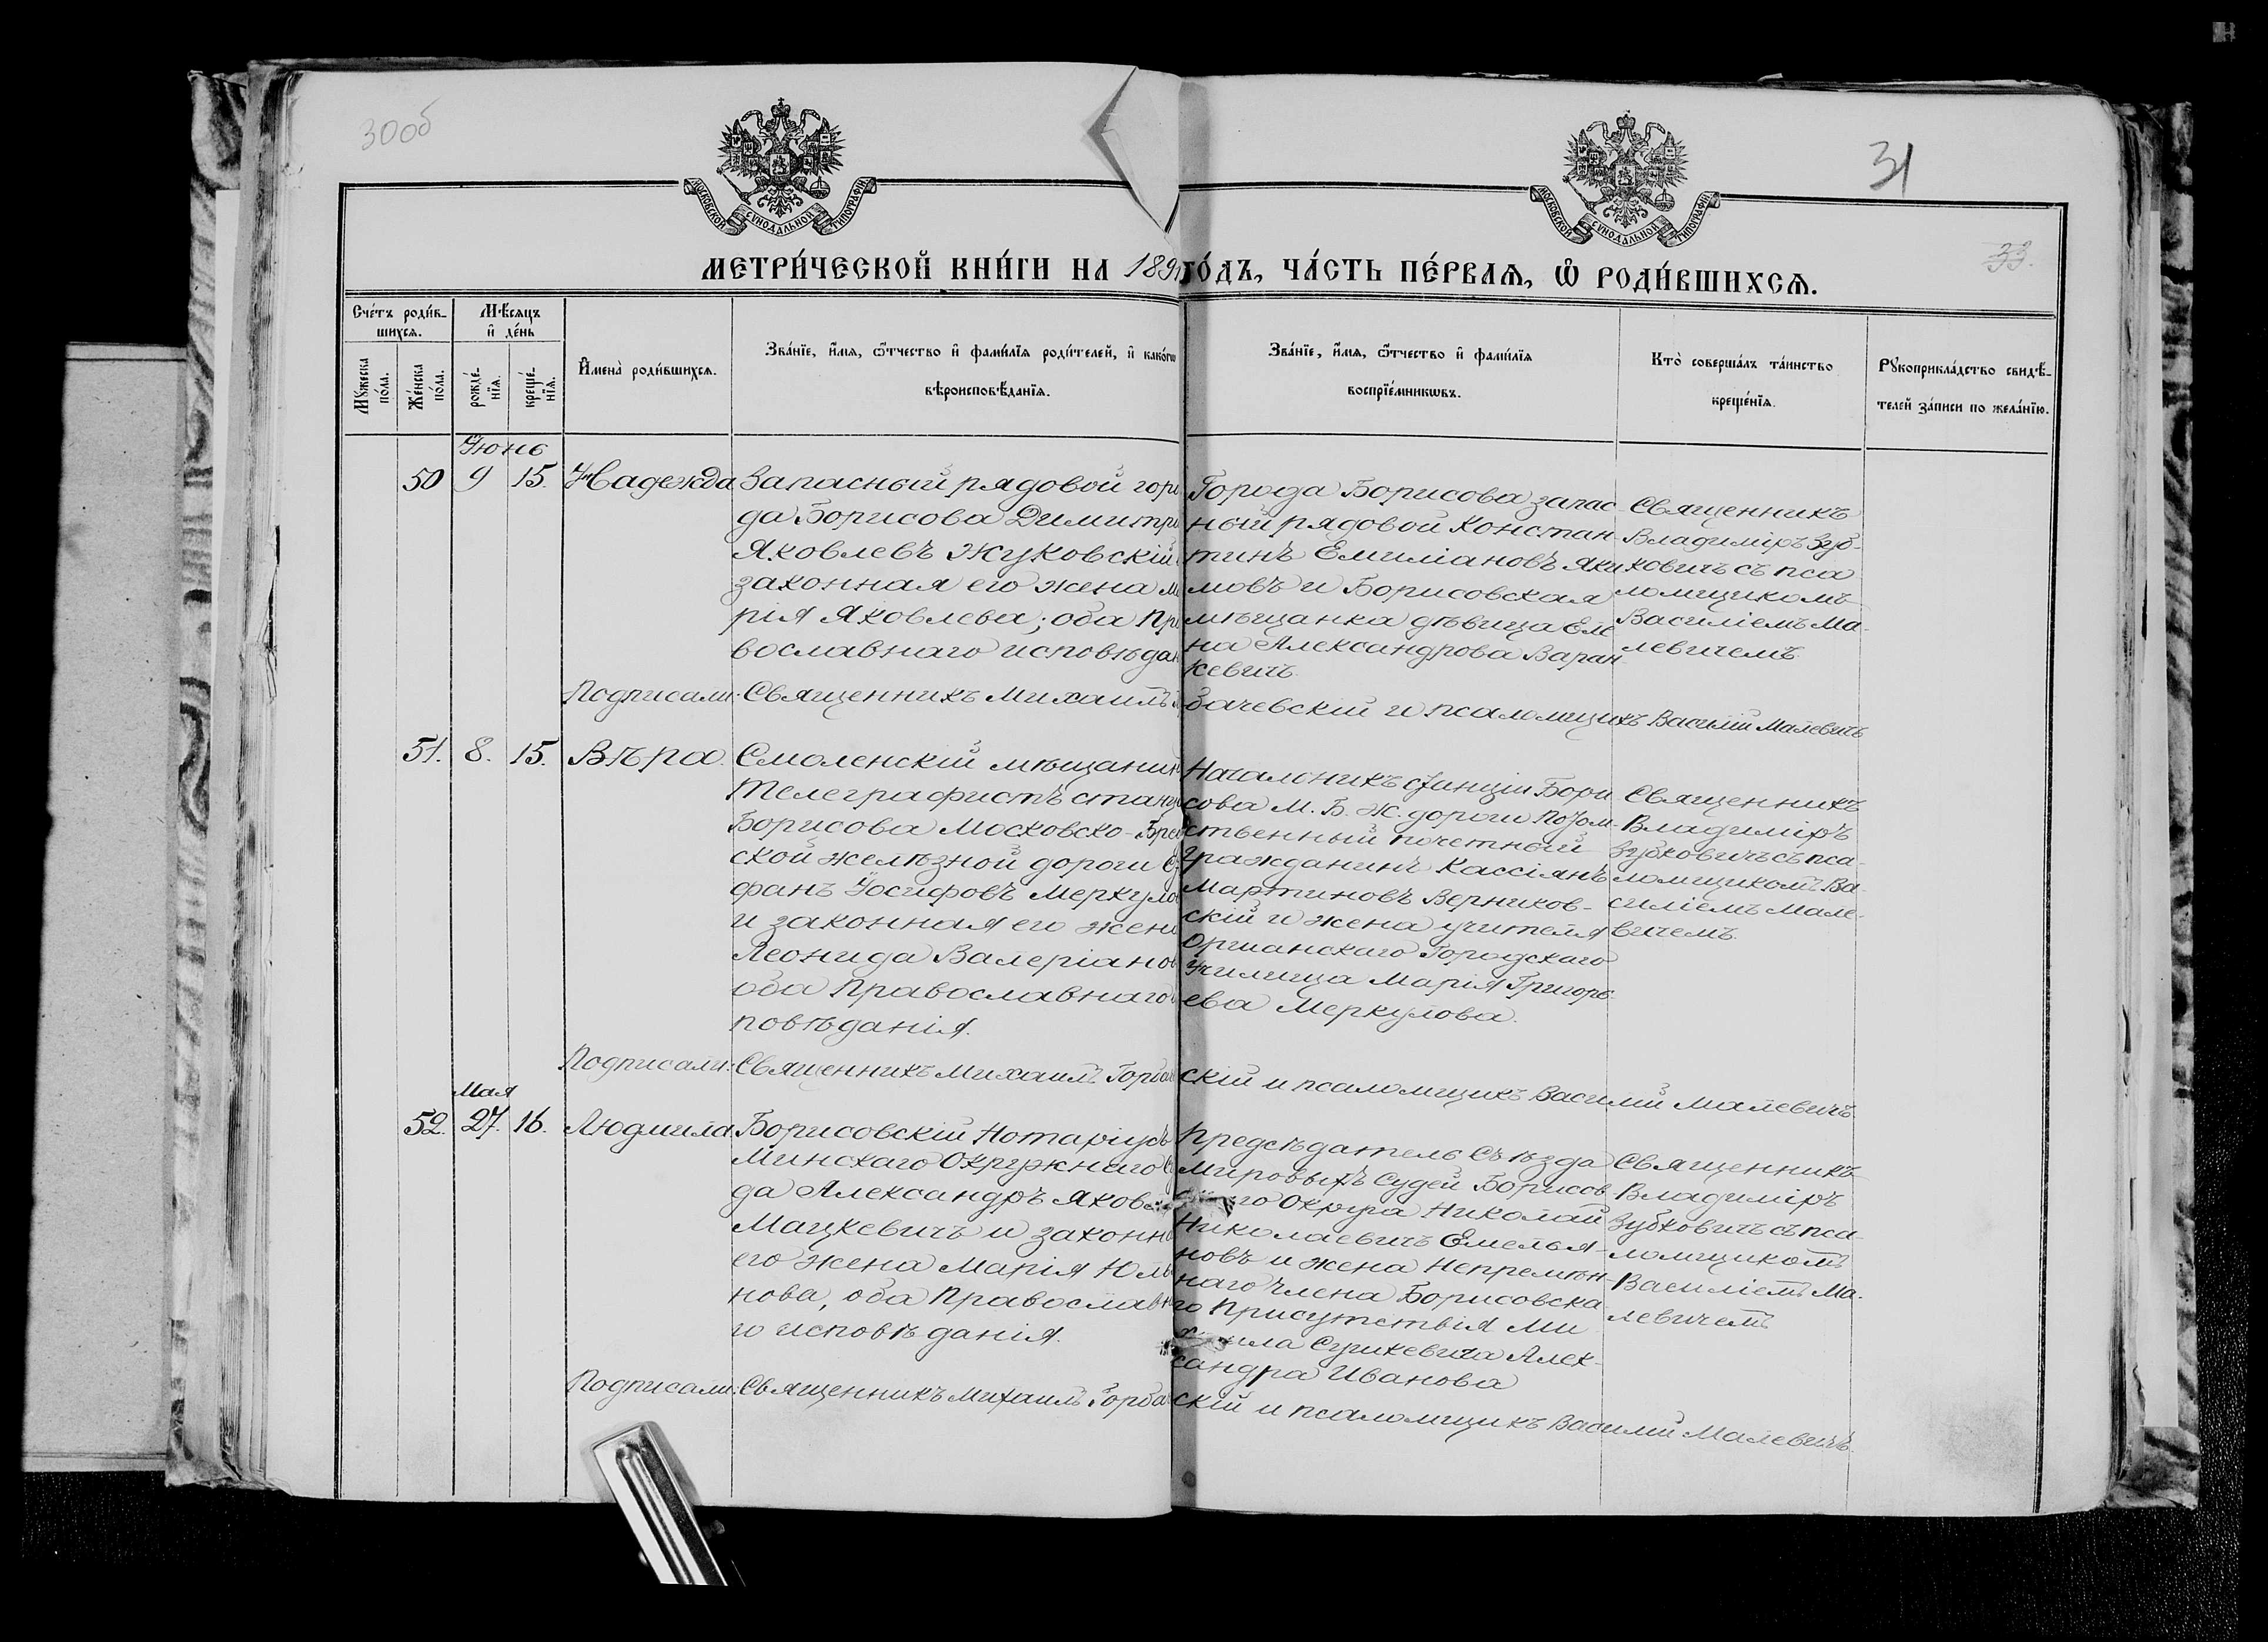 30об
31
33.
МОСКОВСКОЙ СѴНОДАЛЬНОЙ ТИПОГРАФІИ
МОСКОВСКОЙ СѴНОДАЛЬНОЙ ТИПОГРАФІИ
МЕТРИ́ЧЕСКОЙ КНИ́ГИ НА 189
ГО́ДЪ, ЧА́СТЬ ПЕ́РВАѦ, Ѡ҆ РОДИ́ВШИХСѦ.
Сче́тъ роди́в-
шихсѧ.
Мꙋ́жеска по́ла.
Же́нска по́ла.
Мѣ́сѧцъ
и҆ де́нь
рожде́-
нїѧ.
креще́-
нїѧ.
И҆мена̀ роди́вшихсѧ.
Зва́нїе, и҆́мѧ, ѻ҆́тчество и҆ фами́лїѧ роди́телей, и҆ како́гѡ
вѣроисповѣ́данїѧ.
Зва́нїе, и҆́мѧ, ѻ҆́тчество и҆ фами́лїѧ
воспрїе́мникѡвъ.
Кто̀ соверша́лъ та́инство
креще́нїѧ.
Рꙋкоприкла́дство свидѣ́-
телей за́писи по жела́нїю.
Іюнь
50 9 15. Надежда
Запасный рядовой горо
да Борисова Димитрі
Яковлевъ Жуковскій
законная его жена Ма
рія Яковлева; оба Пра
вославнаго исповѣдан
Города Борисова запас
ный рядовой Констан
тинъ Емиліановъ Яки
мовъ и Борисовская
мѣщанка дѣвица Еле
на Александрова Варан
кевичъ.
Священникъ
Владиміръ Зуб-
ковичъ съ пса
ломщикомъ
Василіемъ Ма-
левичемъ.
Подписали: Священникъ Михаилъ
бачевскій и псаломщикъ Василій Малевичъ
51. 8. 15. Вѣра.
Смоленскій мѣщанин
Телеграфистъ станц
Борисова Московско-Брес
ской желѣзной дороги Ст
фанъ Іосифовъ Меркуло
и законная его жена
Леонида Валеріанов
оба Православнаго
повѣданія.
Начальникъ станціи Бори
сова М. Б. Ж. дороги потом-
ственный почетный
гражданинъ Кассіянъ
Мартиновъ Верников-
скій и жена учителя
Оршанскаго Городскаго
Училища Марія Григорь
ева Меркулова.
Священникъ
Владиміръ
Зубковичъ съ пса-
ломщикомъ Ва-
силіемъ Мале-
вичемъ.
Подписали: Священникъ Михаилъ Горбач
скій и псаломщикъ Василій Малевичъ.
Мая
52. 27. 16. Людмила
Борисовскій Нотаріусъ
Минскаго Окружнаго Су
да Александръ Яковл
Мацкевичъ и законн
его жена Марія Юлі
нова, оба Православн
го исповѣданія.
Предсѣдатель Съѣзда
Мировыхъ Судей Борисов
го Округа Николай
Николаевичъ Емелья-
новъ и жена Непремѣн-
наго Члена Борисовска
го Присутствія Ми
хаила Сушкевича Алек-
сандра Иванова
Священникъ
Владиміръ
Зубковичъ съ пса-
ломщикомъ
Василіемъ Ма-
левичемъ
Подписали: Священникъ Михаилъ Горбач
скій и псаломщикъ Василій Малевичъ.